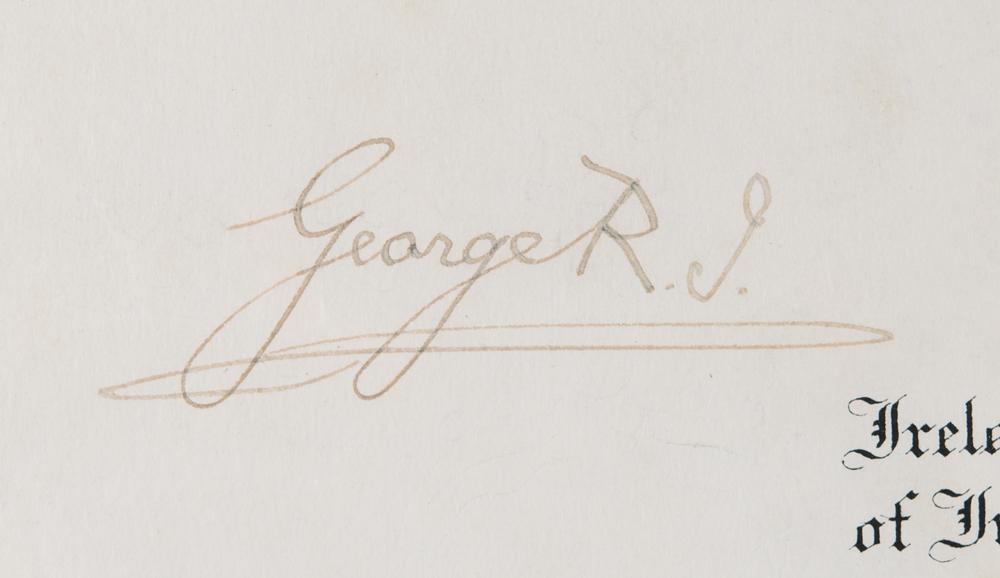 George R.I.
Irela
of In